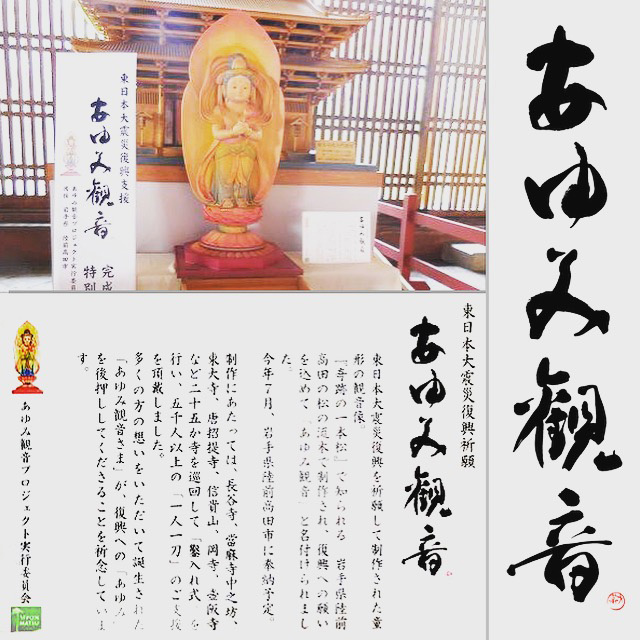 あゆみ觀音
東日本大震災復興支援
あゆみ觀音
完成
特別
あゆみ觀音
東日本大震災復興祈願
あゆみ觀音
東日本大震災復興を祈願して制作された童
形の観音像。
「奇跡の一本松」で知られる 岩手県陸前
高田の松の流木で制作され、復興への願い
を込めて、「あゆみ観音」と名付けられまし
た。
今年7月、岩手県陸前高田市に奉納予定。
制作にあたっては、長谷寺、當麻寺中之坊、
東大寺、唐招提寺、信貴山、岡寺、壺阪寺
など二十五か寺を巡回して、「鑿入れ式」を
行い、五千人以上の「一人一刀」のご支援
を頂戴しました。
多くの方の想いをいただいて誕生された
「あゆみ観音さま」が、復興への「あゆみ」
を後押ししてくださることを祈念していま
す。
あゆみ観音プロジェクト実行委員会